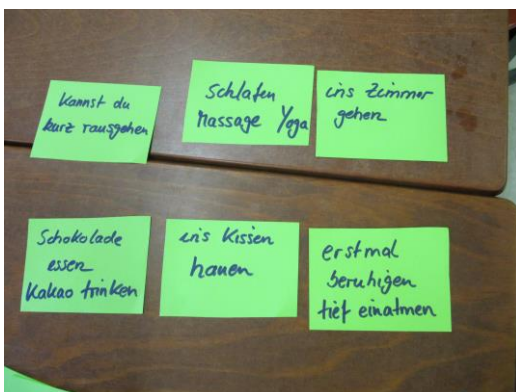 Kannst du
kurz rausgehen
Schlafen
Massage Yoga
ins Zimmer
gehen
Schokolade
essen
Kakao trinken
ins Kissen
hauen
erstmal
beruhigen
tief einatmen